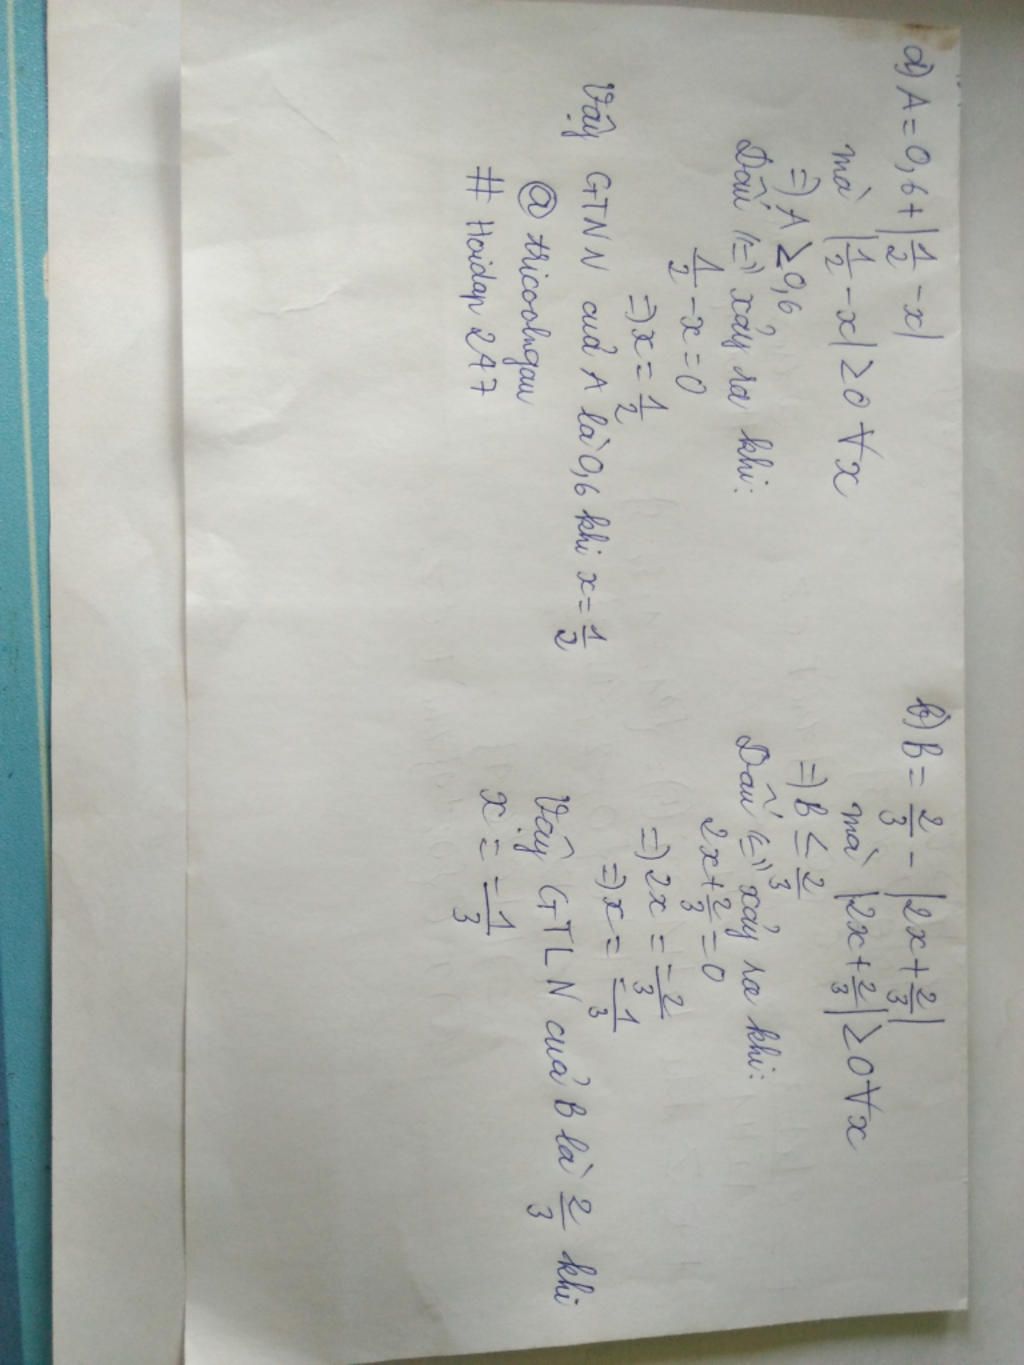 a) A = 0,6 + |1/2 - x|
mà |1/2 - x| ≥ 0 ∀x
=) A ≥ 0,6
Dấu "=" xảy ra khi:
1/2 - x = 0
=) x = 1/2
Vậy GTNN của A là 0,6 khi x = 1/2
@ tricoolngau
# Hoidap 247
b) B = 2/3 - |2x + 2/3|
mà |2x + 2/3| ≥ 0 ∀x
=) B ≤ 2/3
Dấu "=" xảy ra khi:
2x + 2/3 = 0
=) 2x = -2/3
=) x = -1/3
Vậy GTLN của B là 2/3 khi
x = -1/3